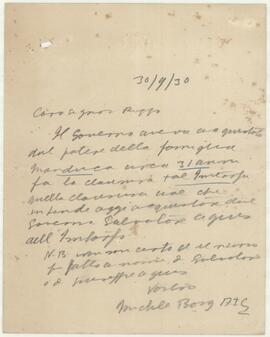 30/9/30
Caro Signor Rizzo
Il Governo aveva acquistato
dal potere della famiglia
Manduca circa 31 anni
fa la clausura tal Imtarfa
quella clausura che
intende oggi acquistare dal
Governo Salvatore Agius
dell' Imtarfa
N.B. non son certo se il
fu fatto a nome di Salvatore
o di Giuseppe Agius
Michele Borg